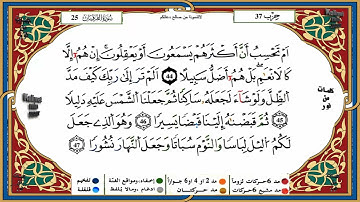 سورة الفرقان 25
حزب 37
أَمْ تَحْسَبُ أَنَّ أَكْثَرَهُمْ يَسْمَعُونَ أَوْ يَعْقِلُونَ ۚ إِنْ هُمْ إِلَّا
كَالْأَنْعَامِ ۖ بَلْ هُمْ أَضَلُّ سَبِيلًا 44 أَلَمْ تَرَ إِلَىٰ رَبِّكَ كَيْفَ مَدَّ
الظِّلَّ وَلَوْ شَاءَ لَجَعَلَهُ سَاكِنًا ثُمَّ جَعَلْنَا الشَّمْسَ عَلَيْهِ دَلِيلًا
45 ثُمَّ قَبَضْنَاهُ إِلَيْنَا قَبْضًا يَسِيرًا 46 وَهُوَ الَّذِي جَعَلَ
لَكُمُ اللَّيْلَ لِبَاسًا وَالنَّوْمَ سُبَاتًا وَجَعَلَ النَّهَارَ نُشُورًا 47
كلمات
من
نور
مد 6 حركات لزوما
مد 2 او 4 او 6 جوازا
إخفاء، ومواقع الغنة
تفخيم
مد مشبع 6 حركات
مد حركتان
ادغام، ومالا يلفظ
قلقلة